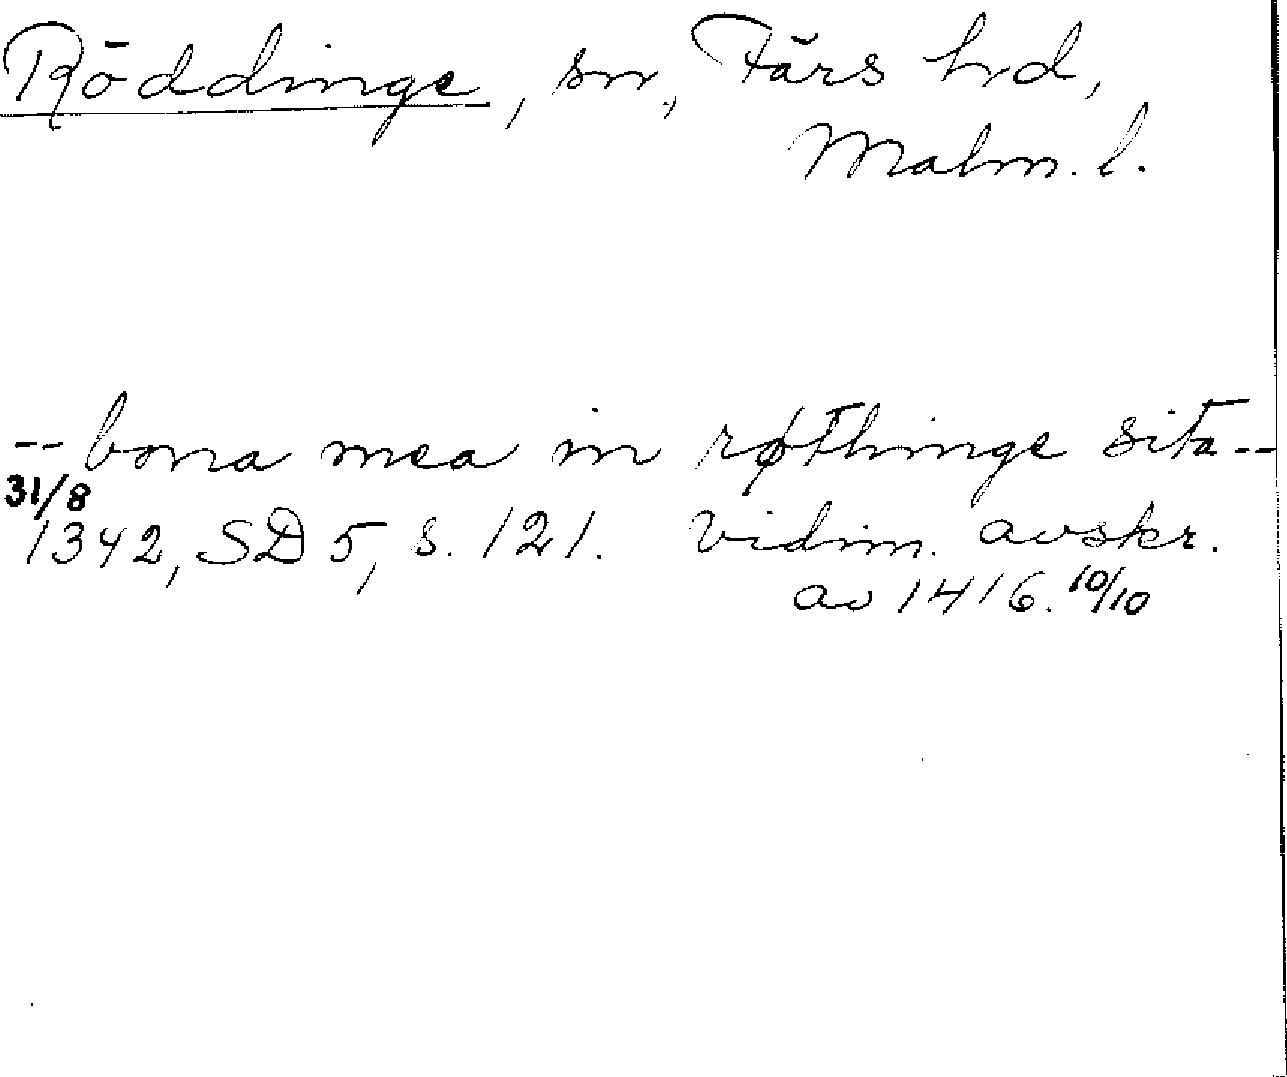 Röddinge, sn, Färs hrd,
Malm. l.
-- bona mea in røthinge sita --
31/8
1342, SD 5, s. 121. Vidim. avskr.
av 1416. 10/10